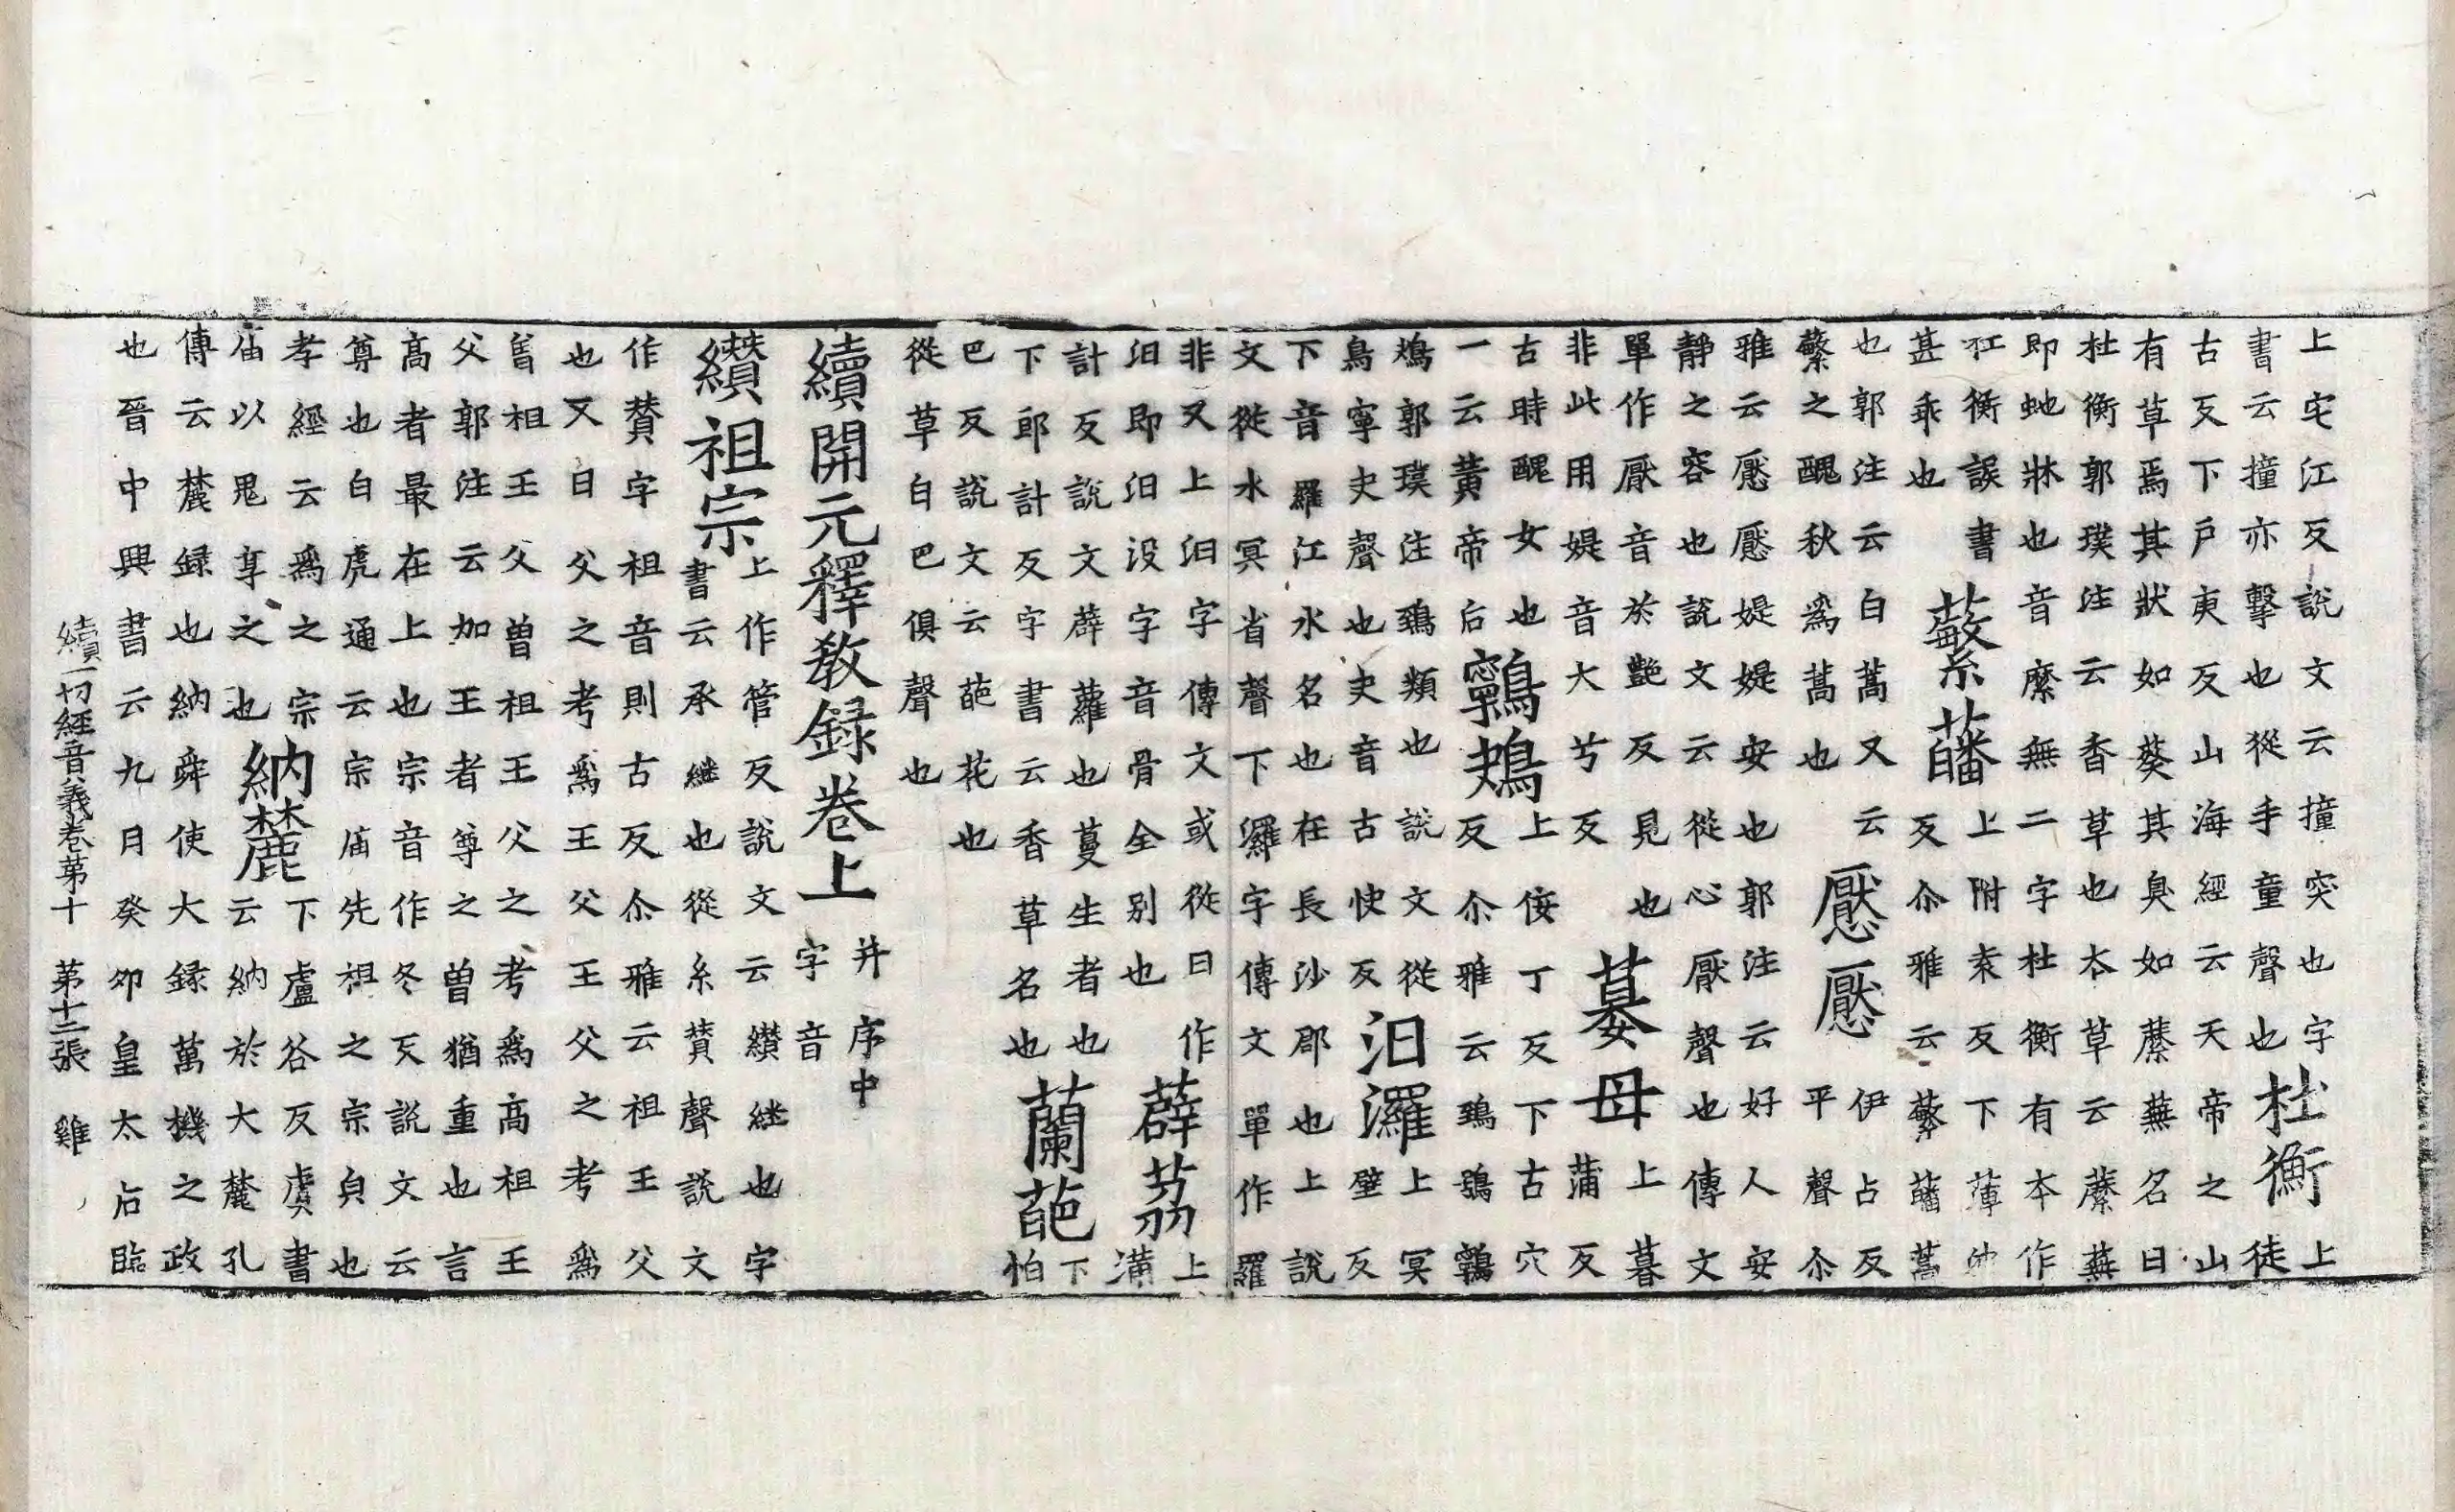 上宅江反說文云撞突也字
書云撞亦擊也從手童聲也
杜衡
上
徒
古反下戶庚反山海經云天帝之山
有草焉其狀如葵其臭如蘪蕪名曰
杜衡郭璞注云香草也本草云蘪蕪
即虵牀也音縻無二字杜衡有本作
杜衡誤書
甚乖也
蘩䕰
上附袁反下薄
反尒雅云蘩䕰蒿
也郭注云白蒿又云
蘩之醜秋為蒿也
懕懕
伊占反
平聲尒
雅云懕懕媞媞安也郭注云好人安
靜之容也說文云從心厭聲也傳文
單作厭音於艷反見也
非此用媞音大兮反
嫫母
上暮
蒲反
古時醜女也
一云黃帝后
鸋鴂
上侫丁反下古穴
反尒雅云鵄鴞鸋
鴂郭璞注鵄類也說文從
鳥寧夬聲也夬音古快反
汨灑
上冥
壁反
下音羅江水名也在長沙郡也上說
文從水冥省聲下灑字傳文單作羅
非又上汨字傳文或從曰作
汩即汩没字音骨全別也
薜荔
上
蒲
計反說文薜蘿也蔓生者也
下郎計反字書云香草名也
蘭葩
下
怕
巴反說文云葩花也
從草白巴俱聲也
續開元釋教録卷上
并序中
字音
纘祖宗
上作管反說文云纘継也字
書云承継也從糸贊聲說文
作贊字祖音則古反尒雅云祖王父
也又曰父之考為王父王父之考為
曾祖王父曾祖王父之考為高祖王
父郭注云加王者尊之曾猶重也言
高者最在上也宗音作冬反說文云
尊也白虎通云宗庙先祖之宗皃也
孝經云為之宗
庙以鬼享之也
納麓
下盧谷反虞書
云納於大麓孔
傳云麓録也納舜使大録萬機之政
也晉中興書云九月癸卯皇太后臨
續一切經音義卷第十 第十二張 雞